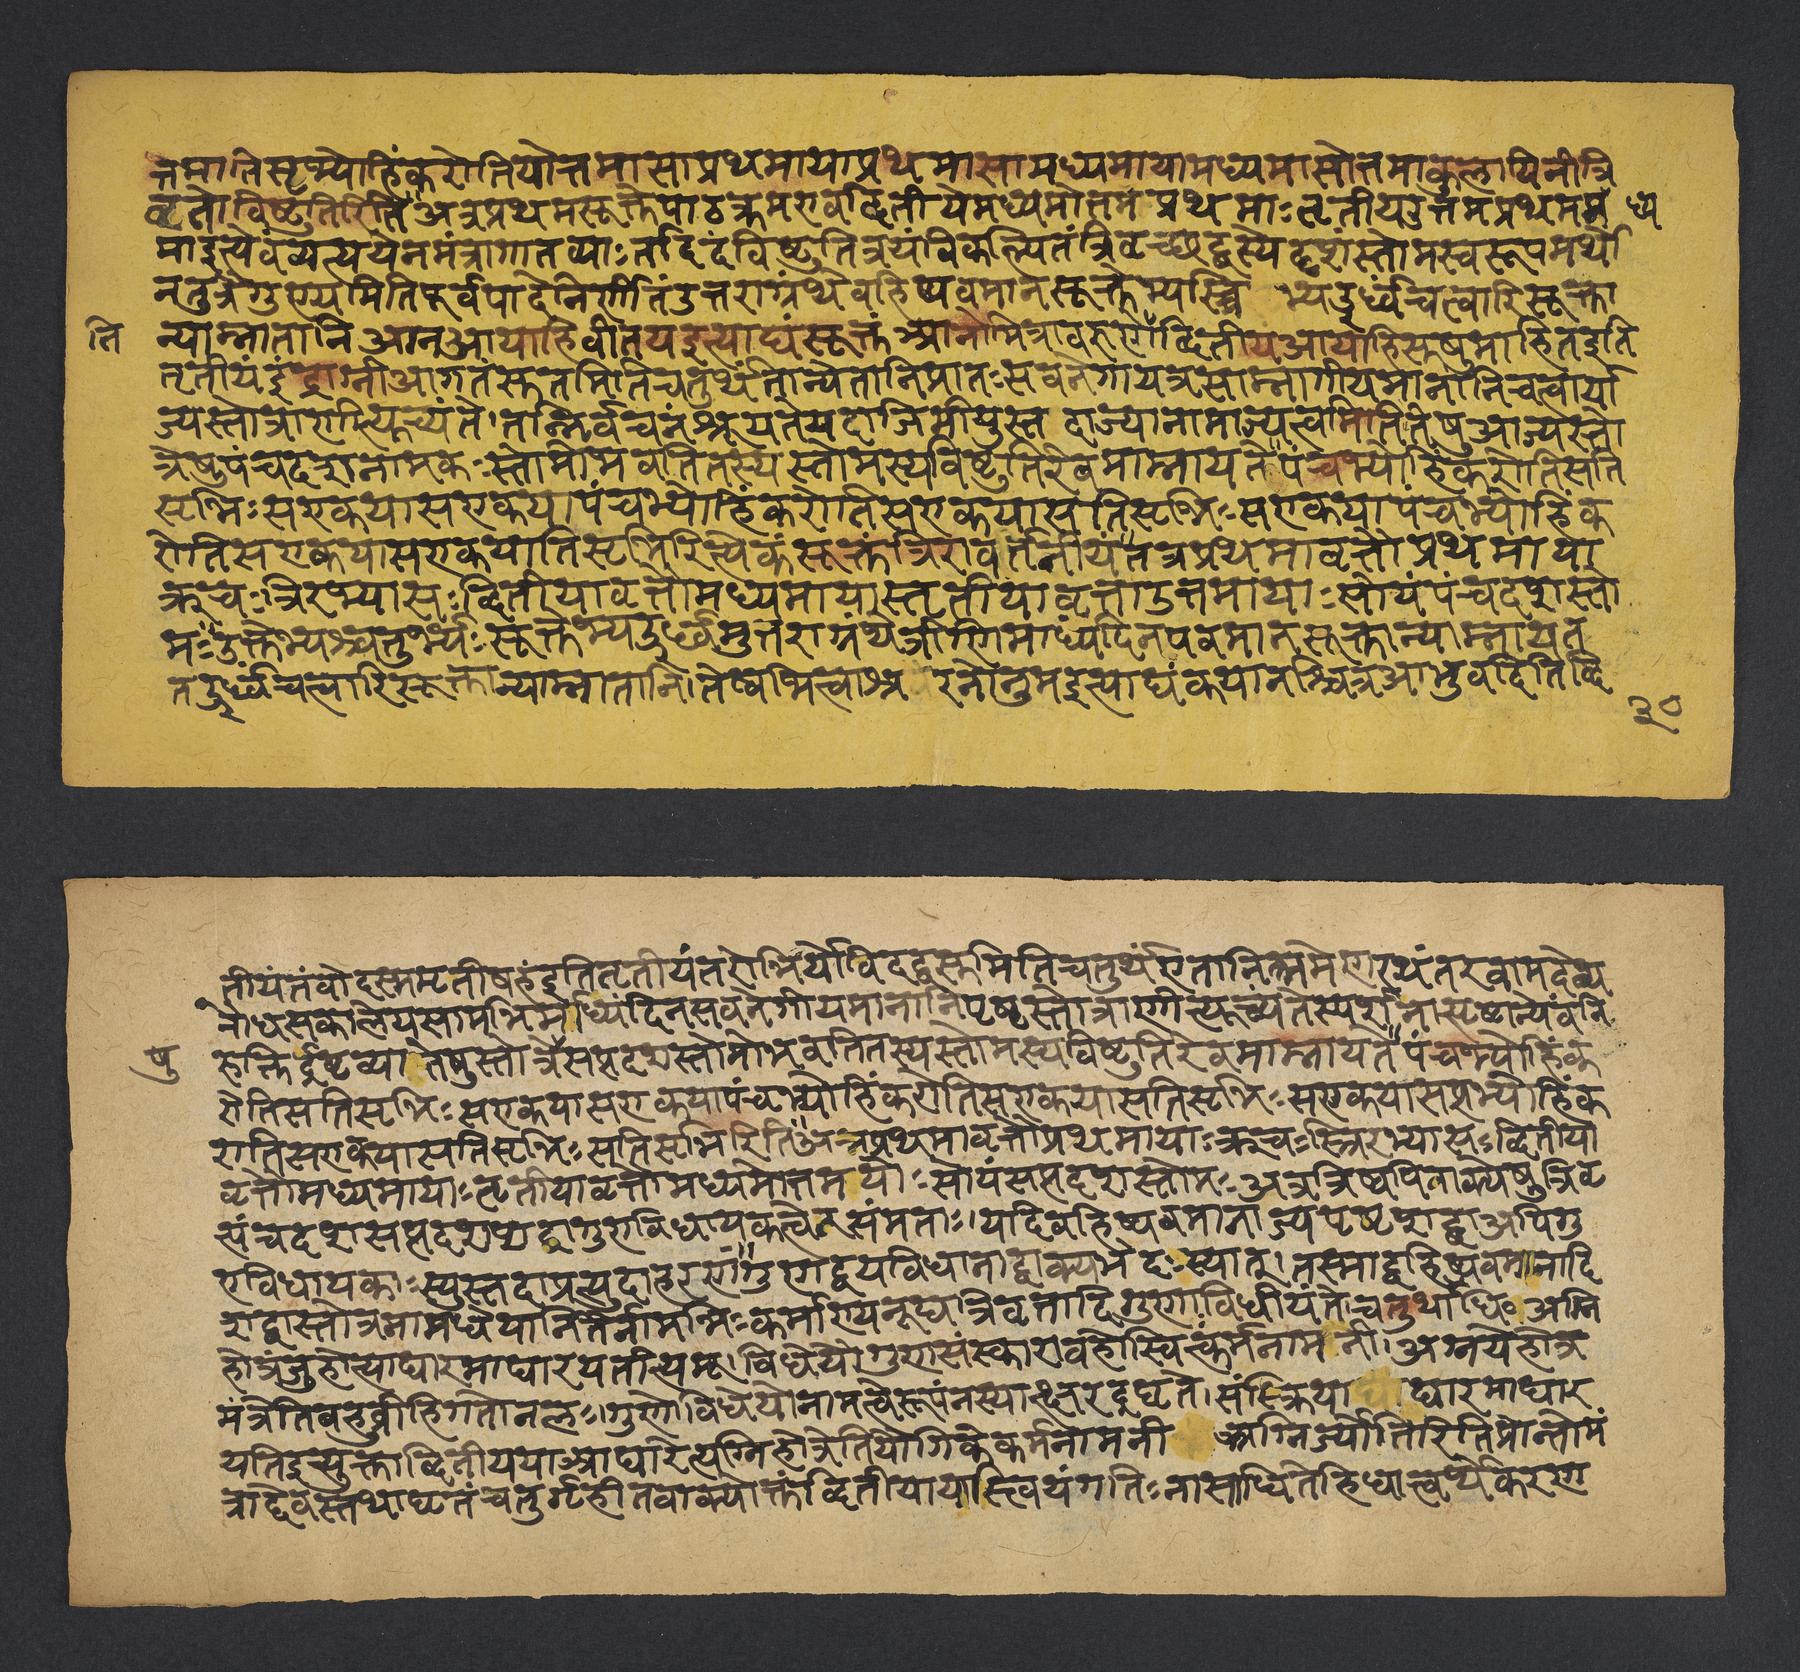 त्तमातिसृभ्योहिंकरोतियोत्तमासाप्रथमायाप्रथमासामध्यमायामध्यमासोत्तमाकुलायिनीत्रि
वृतोविष्टुतिरिति॥अत्रप्रथमसूक्तेपाठक्रमएवद्वितीयेमध्यमोत्तमप्रथमाःतृतीयेउत्तमप्रथममध्य
माइत्येवंव्यत्ययेनमंत्रागातव्याःतदिदंविष्टुतित्रयंविकल्पितंत्रिवृच्छब्दस्येदृशंस्तोमस्वरूपमर्थो
नतुत्रैगुण्यमितिपूर्वपादेनिर्णीतंउत्तराग्रंथेबहिष्पवमानसूक्तेभ्यस्त्रि भ्यऊर्ध्वंचत्वारिसूक्ता
ति
न्याम्नातानिअग्नआयाहिवीतयइत्याद्यंसूक्तंआनोमित्रावरुणेद्वितीयंआयाहिसुषुमाहितइति
तृतीयंइंद्राग्नीआगतंसुतमितिचतुर्थंतान्येतानिप्रातःसवनेगायत्रसाम्नागीयमानानिचत्वार्या
ज्यस्तोत्राणीत्युच्यंते।तन्निर्वचनंश्रूयतेयदाजिमीयुस्तदाज्यानामाज्यत्वमितितेषुआज्यस्तो
त्रेषुपंचदशनामकःस्तोमोभवतितस्यस्तोमस्यविष्टुतिरेवमाम्नायते॥पंचभ्योहिंकरोतिसति
सृभिःसएकयासएकयापंचभ्योहिंकरोतिसएकयासतिसृभिःसएकयापंचभ्योहिंक
रोतिसएकयासएकयातिसृभिरित्येकंसूक्तंत्रिरावर्तनीयं॥तत्रप्रथमावृत्तौप्रथमाया
ऋचःत्रिरभ्यासःद्वितीयावृत्तौमध्यमायास्तृतीयावृत्तौउत्तमायाःसोयंपंचदशस्तो
मः॥उक्तेभ्यश्चतुर्भ्यःसूक्तेभ्यऊर्ध्वमुत्तराग्रंथेत्रीणिमाध्यंदिनपवमानसूक्तान्याम्नायंते
तऊर्ध्वंचत्वारिसूक्तान्याम्नातानि।तेष्वभित्वाशूरनोनुमइत्याद्यंकयानश्चित्रआभुवदितिद्वि
३०
तीयंतंवोदस्ममृतीषहंइतितृतीयंतरोभिर्वोविदद्वसुमितिचतुर्थंएतानिक्रमेणरथंतरवामदेव्य
नौधसकालेयसामभिर्माध्यंदिनसवनेगीयमानानिपृष्ठस्तोत्राणीत्युच्यंतेस्पर्शनात्पृष्ठान्येवंनि
षु
रुक्तिर्द्रष्टव्या तेषुस्तोत्रेसप्तदशस्तोमोभवतितस्यस्तोमस्यविष्टुतिरेवमाम्नायते॥पंचभ्योहिंक
रोतिसतिसृभिःसएकयासएकयापंचभ्योहिंकरोतिसएकयासतिसृभिःसएकयासप्तभ्योहिंक
रोतिसएकयासतिसृभिःसतिसृभिरिति॥अत्रप्रथमावृत्तौप्रथमायाःऋचःस्त्रिरभ्यासःद्वितीया
वृत्तौमध्यमायाःतृतीयावृत्तौमध्यमोत्तमयोःसोयंसप्तदशस्तोमःअत्रत्रिष्वपिवाक्येषुत्रिवृ
त्पंचदशसप्तदशशब्दागुणविधायकत्वेनसंमताः।यदिबहिष्पवमानाज्यपृष्ठशब्दाअपिगु
णविधायकाःस्युस्तदाप्रत्युदाहरणं॥गुणद्वयविधानाद्वाक्यभेदःस्यात्।तस्माद्बहिष्पवमानादि
शब्दास्तोत्रनामधेयानितैर्नामभिःकर्माण्यनूद्यत्रिवृत्तादिगुणाविधीयंतेचतुर्थाधि॰अग्नि
होत्रंजुहोत्याघारमाघारयतीत्यमू।विधेयौगुणसंस्कारावहोस्वित्कर्मनामनी।अग्नयेहोत्र
मंत्रेतिबहुव्रीहिगतोनलः।गुणोविधेयोनामत्वेरूपंनस्यात्क्षरद्घृते।संस्क्रियाघाघारमाघार
यतिइत्युक्ताद्वितीययाआघारेत्यग्निहोत्रेतियौगिकेकर्मनामनी अग्निर्ज्योतिरितिप्रोक्तोमं
त्राद्देवस्तथाघृतंचतुर्गृहीतवाक्योक्तंद्वितीयायास्त्वियंगतिःनासाधितेहिधात्वर्थेकरण